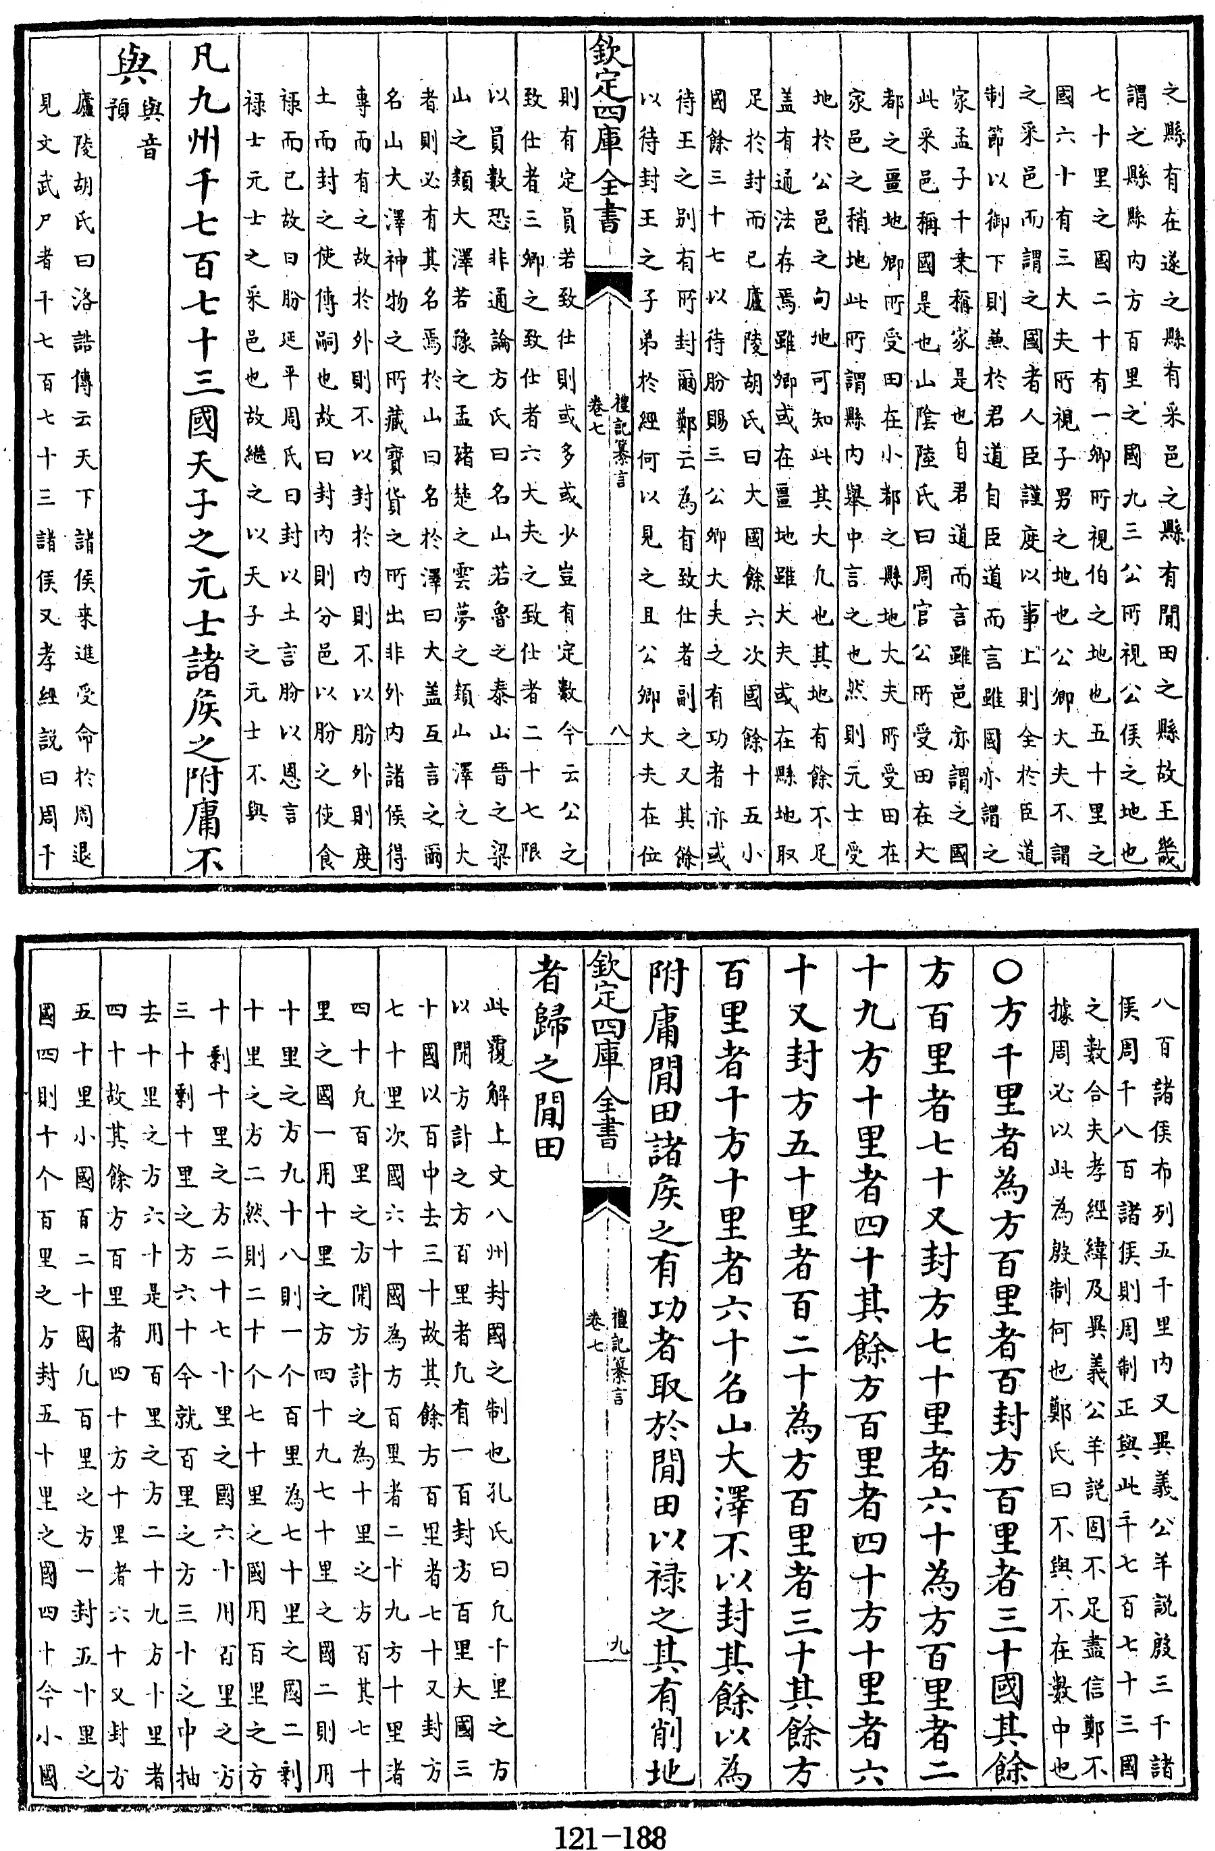 之縣有在遂之縣有采邑之縣有閒田之縣故王畿
謂之縣縣内方百里之國九三公所視公侯之地也
七十里之國二十有一卿所視伯之地也五十里之
國六十有三大夫所視子男之地也公卿大夫不謂
之采邑而謂之國者人臣謹度以事上則全於臣道
制節以御下則兼於君道自臣道而言雖國亦謂之
家孟子千乗稱家是也自君道而言雖邑亦謂之國
此采邑稱國是也山陰陸氏曰周官公所受田在大
都之畺地卿所受田在小都之縣地大夫所受田在
家邑之稍地此所謂縣内舉中言之也然則元士受
地於公邑之甸地可知此其大凡也其地有餘不足
蓋有通法存焉雖卿或在畺地雖大夫或在縣地取
足於封而已廬陵胡氏曰大國餘六次國餘十五小
國餘三十七以待肦賜三公卿大夫之有功者亦或
待王之别有所封爾鄭云為有致仕者副之又其餘
以待封王之子弟於經何以見之且公卿大夫在位
欽定四庫全書
禮記纂言
卷七
八
則有定員若致仕則或多或少豈有定數今云公之
致仕者三卿之致仕者六大夫之致仕者二十七限
以員數恐非通論方氏曰名山若魯之泰山晉之梁
山之類大澤若豫之孟豬楚之雲夢之類山澤之大
者則必有其名焉於山曰名於澤曰大蓋互言之爾
名山大澤神物之所藏寳貨之所出非外内諸侯得
專而有之故於外則不以封於内則不以肦外則度
土而封之使傳嗣也故曰封内則分邑以肦之使食
禄而已故曰肦延平周氏曰封以土言肦以恩言
禄士元士之采邑也故繼之以天子之元士不與
凡九州千七百七十三國天子之元士諸侯之附庸不
與
與音
預
廬陵胡氏曰洛誥傳云天下諸侯来進受命於周退
見文武尸者千七百七十三諸侯又孝經説曰周千
八百諸侯布列五千里内又異義公羊説殷三千諸
侯周千八百諸侯則周制正與此千七百七十三國
之數合夫孝經緯及異義公羊説固不足盡信鄭不
據周必以此為殷制何也鄭氏曰不與不在數中也
○方千里者為方百里者百封方百里者三十國其餘
方百里者七十又封方七十里者六十為方百里者二
十九方十里者四十其餘方百里者四十方十里者六
十又封方五十里者百二十為方百里者三十其餘方
百里者十方十里者六十名山大澤不以封其餘以為
附庸閒田諸侯之有功者取於閒田以禄之其有削地
欽定四庫全書
禮記纂言
卷七
九
者歸之閒田
此覆解上文八州封國之制也孔氏曰凡千里之方
以開方計之方百里者凡有一百封方百里大國三
十國以百中去三十故其餘方百里者七十又封方
七十里次國六十國為方百里者二十九方十里者
四十凡百里之方開方計之為十里之方百其七十
里之國一用十里之方四十九七十里之國二則用
十里之方九十八則一个百里為七十里之國二剩
十里之方二然則二十个七十里之國用百里之方
十剩十里之方二十七十里之國六十用百里之方
三十剩十里之方六十今就百里之方三十之中抽
去十里之方六十是用百里之方二十九方十里者
四十故其餘方百里者四十方十里者六十又封方
五十里小國百二十國凡百里之方一封五十里之
國四則十个百里之方封五十里之國四十今小國
121-188